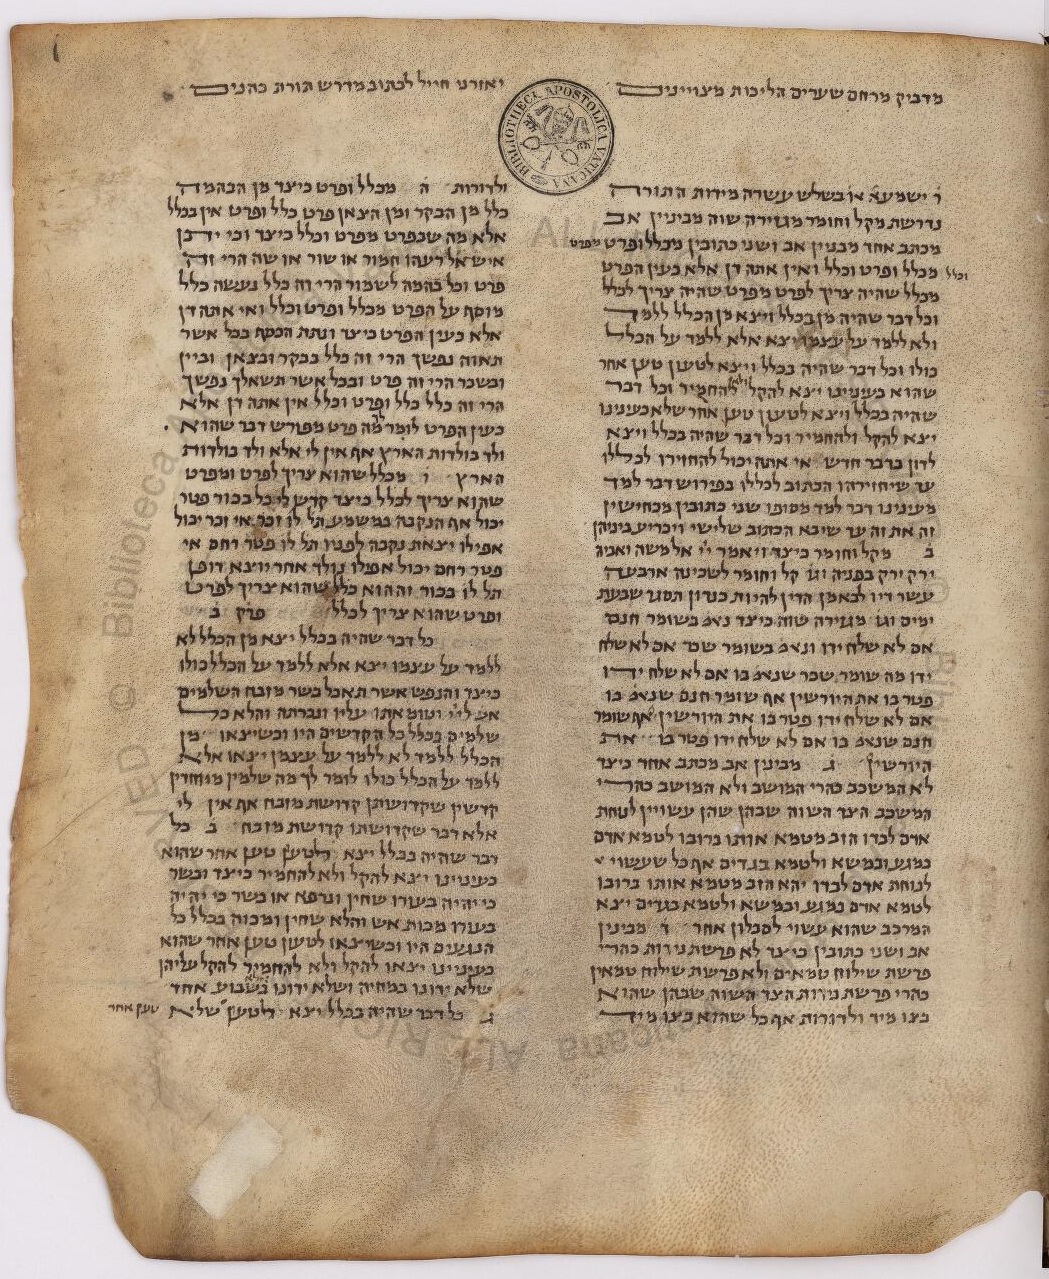 מדביק מרחם שערים הליכות מצויינים
ויאזרני חייל לכתוב מדרש תורת כהנים
BIBLIOTHECA APOSTOLICA VATICANA
ר ישמעאֿ או בשלש עשרה מידות התורה
נדרשת מקל וחומר מגזירה שוה מבינין אב
מכתב אחד מבניין אב ושני כתובין מכלל ופרט מפרט
וכלל מכלל ופרט וכלל ואין אתה דן אלא כעין הפרט
מכלל שהיה צריך לפרט מפרט שהיה צריך לכלל
וכל דבר שהיה מן בכלל ויצא מן הכלל ללמד
ולא ללמד על עצמו יצא אלא ללמד על הכלל
כולו וכל דבר שהיה בכלל ויצא לטעון טען אחר
שהוא כעינינו יצא להקל ולא להחמיר וכל דבר
שהיה בכלל ויצא לטעון טען אחר שלא כענינו
יצא להקל ולהחמיר וכל דבר שהיה בכלל ויצא
לדון בדבר חדש אי אתה יכול להחזירו לכללו
עד שיחזירהו הכתוב לכללו בפירוש דבר למד
מענינו ודבר למד מסופו שני כתובין מכחישין
זה את זה עד שיבא הכתוב שלישי ויכריע ביניהן
ב מקל וחומר כיצד ויאמר יי אל משה ואביה
ירק ירק בפניה וגו קל וחומר לשכינה ארבעה
עשר דיו לבא מן הדין להיות כנדון תסגר שבעת
ימים וגו מגזירה שוה כיצד נאמ בשומר חנם
אם לא שלח ידו ונאמ בשומר שכר אם לא שלח
ידו מה שומר שכר שנאמ בו אם לא שלח ידו
פטר בו את היורשין אף שומר חנם שנאמ בו
אם לא שלח ידו פטר בו את היורשין אף שומר
חנם שנאמ בו אם לא שלח ידו פטר בו את
היורשין ג מבינין אב מכתב אחד כיצד
לא המשכב כהרי המושב ולא המושב כהרי
המשכב הצד השוה שבהן שהן עשויין לנוחת
אדם לבדו הזב מטמא אותו ברובו לטמא אדם
במגע ובמשא ולטמא בגדים אף כל שעשוי
לנוחת אדם לבדו יהא הזב מטמא אותו ברובו
לטמא אדם במגע ובמשא ולטמא בגדים יצא
המרכב שהוא עשוי לסבלון אחר ד מבינין
אב ושני כתובין כיצד לא פרשת נירות כהרי
פרשת שילוח טמאים ולא פרשת שילוח טמאין
כהרי פרשת נירות הצד השוה שבהן שהוא
בצו מיד ולדורות אף כל שהוא בצו מיד
ולדורות ה מכלל ופרט כיצד מן הבהמה
כלל מן הבקר ומן הצאן פרט כלל ופרט אין בכלל
אלא מה שבפרט מפרט וכלל כיצד וכי יתן
איש אל רעהו חמור או שור או שה הרי זה
פרט וכל בהמה לשמור הרי זה כלל נעשה כלל
מוסף על הפרט מכלל ופרט וכלל ואי אתה דן
אלא כעין הפרט כיצד ונתת הכסף בכל אשר
תאוה נפשך הרי זה כלל בבקר ובצאן וביין
ובשכר הרי זה פרט ובכל אשר תשאלך נפשך
הרי זה כלל כלל ופרט וכלל אין אתה דן אלא
כעין הפרט לומר לך מה פרט מפורש דבר שהוא
ולד בולדות הארץ אף אין לי אלא ולד בולדות
הארץ ו מכלל שהוא צריך לפרט ומפרט
שהוא צריך לכלל כיצד קדש לי כל בכור פטר
יכול אף הנקבה במשמע תל לו זכר אי זכר יכול
אפילו יצאת נקבה לפניו תל לו פטר רחם אי
פטר רחם יכול אפילו נולד אחר יוצא דופן
תל לו בכור זה הוא כלל שהוא צריך לפרט
ופרט שהוא צריך לכלל פרק ב
כל דבר שהיה בכלל יצא מן הכלל לא
ללמד על עצמו יצא אלא ללמד על הכלל כולו
כיצד והנפש אשר תאכל בשר מזבח השלמים
אש ליי וטומאתו עליו ונכרתה והלא כל
שלמים בכלל כל הקדשים היו וכשיצאו מן
הכלל ללמד לא ללמד על עצמן יצאו אלא
ללמד על הכלל כולו לומר לך מה שלמין מיוחדין
קדשין שקדושתן קדושת מזבח אף אין לי
אלא דבר שקדושתו קדושת מזבח ב כל
דבר שהיה בכלל יצא לטעון טען אחר שהוא
כעינינו יצא להקל ולא להחמיר כיצד ובשר
כי יהיה בעורו שחין ונרפא או בשר כי יהיה
בעורו מכות אש והלא שחין ומכוה בכלל כל
הנגעים היו וכשיצאו לטעון טען אחר שהוא
כעינינו יצאו להקל ולא להחמיר להקל עליהן
שלא ידונו במחיה ושלא ידונו בשבוע אחד
ג כל דבר שהיה בכלל יצא לטעון שלא טען אחר